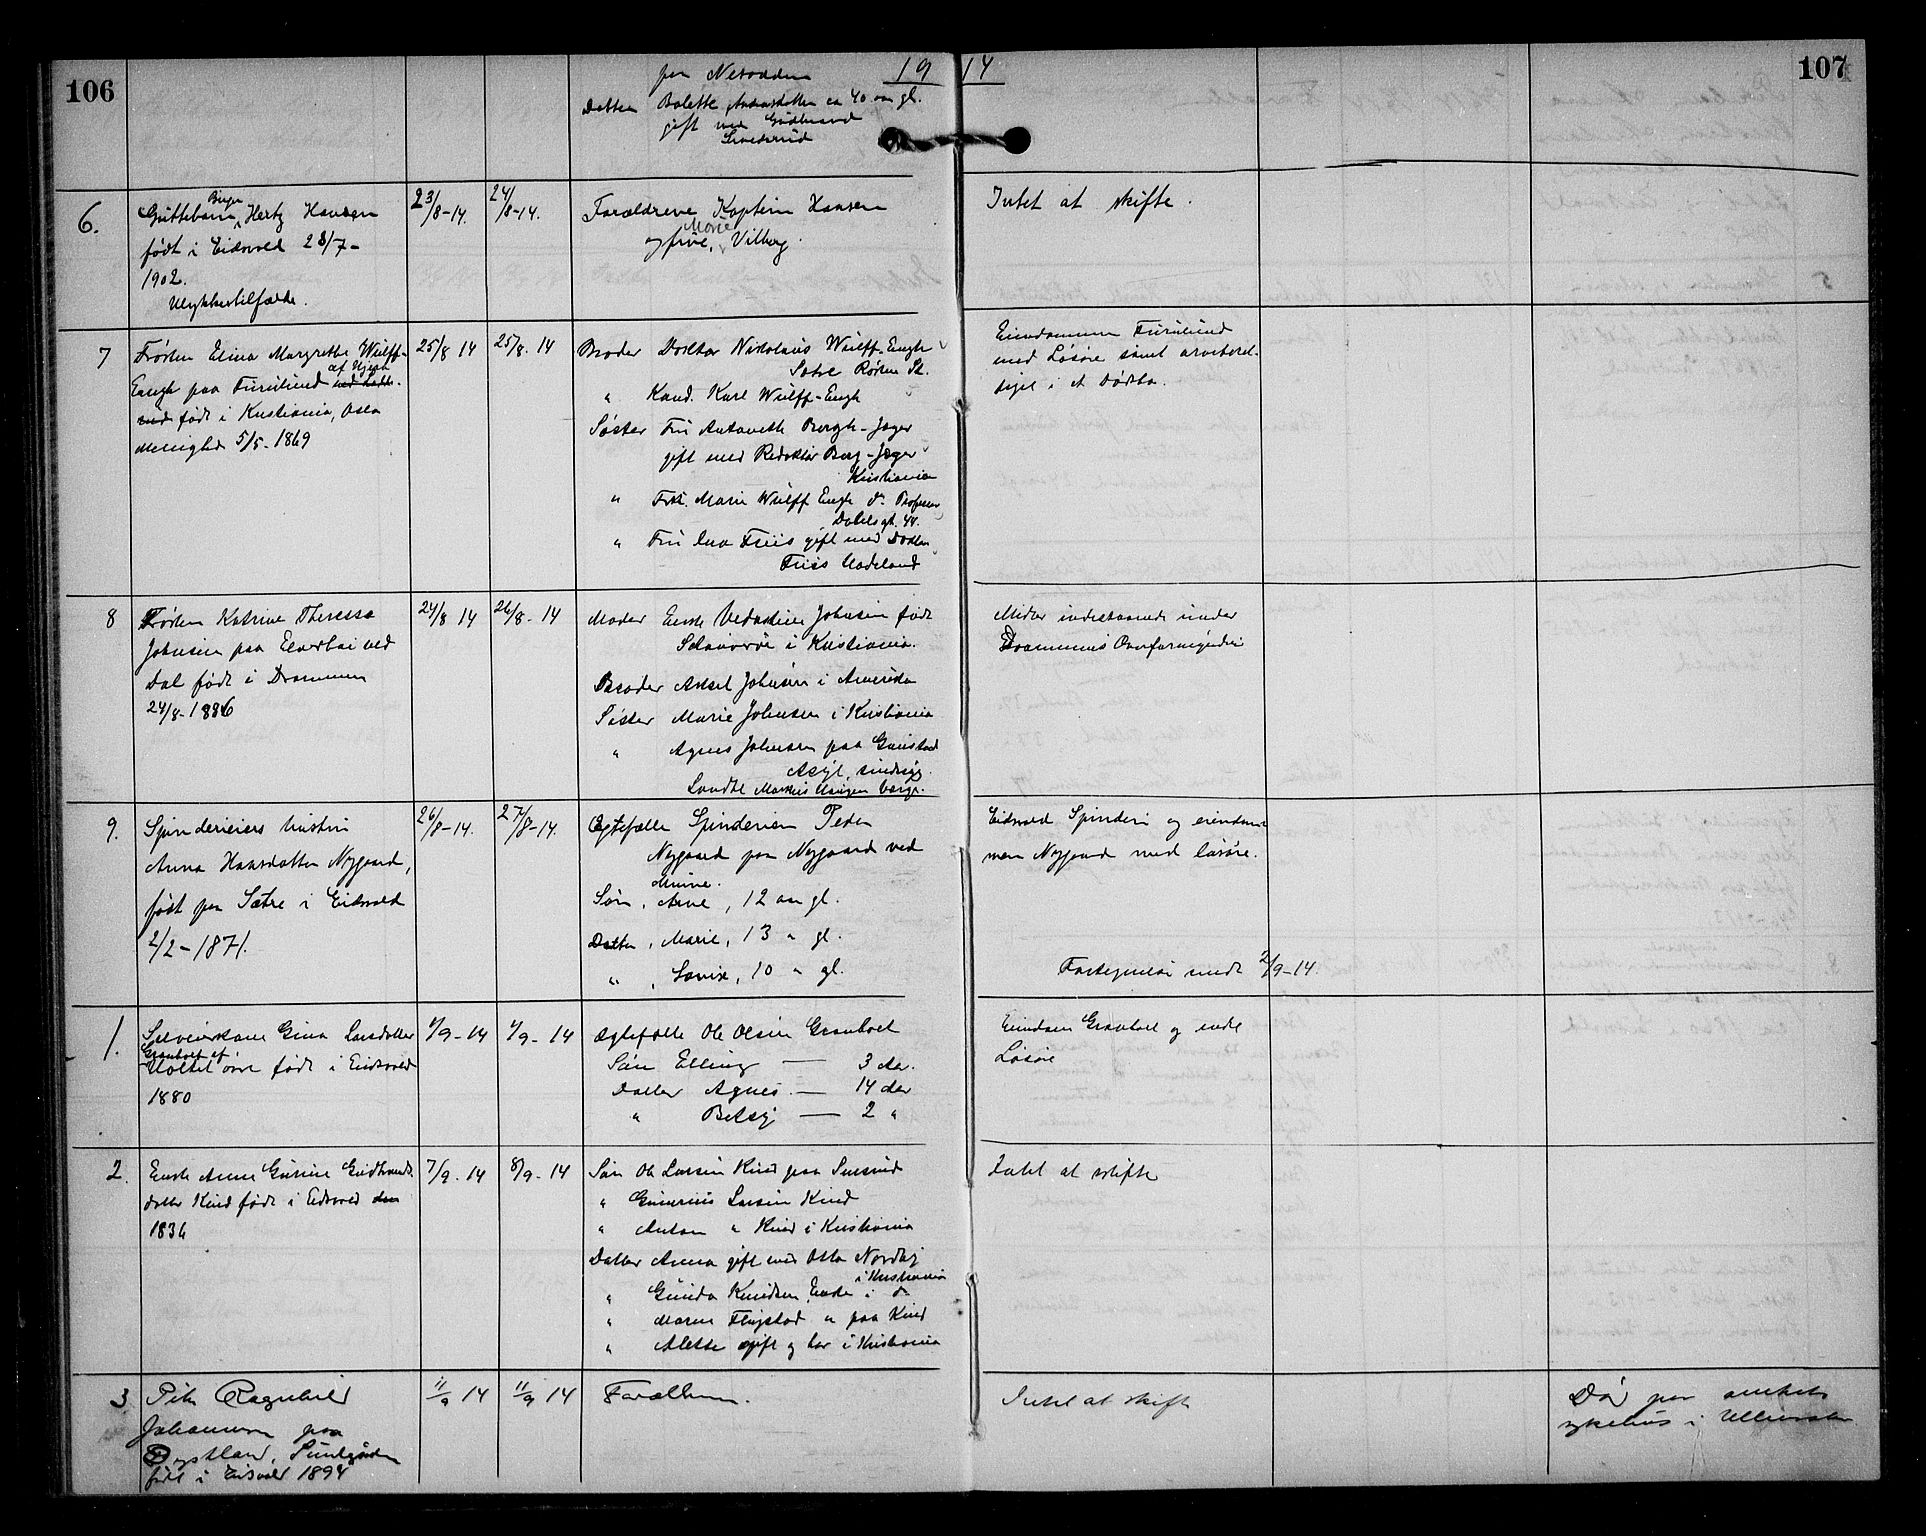 106
19 14
107
paa Nesodden
Datter Bolette Andersdatter ca 40 aar gl.
gift med Gudbrand
6.
Birger
Guttebarn, Hertz Hansen
født i Eidsvold 28/7-
1902.
Ulykkestilfælde.
23/8-14.
24/8-14.
Forældrene Kaptein Hansen
Marie
og frue, Vilberg.
Intet at skifte.
7
Frøken Elina Margrethe Wulff-
Engh paa Furulund
født i Kristiania, Oslo
Menighed 5/5-1869
25/8 14
25/8. 14
Broder Doktor Nikolaus Wulff-Engh
Sætre Røken St.
" Kand. Karl Wulff-Engh
Søster Fru Antonette Bergh-Jæger
gift med Redaktør Berg-Jæger
Kristiania
" Frk. Marie Wulff Engh do Professor
Dahls gt. 44.
" Fru Ina Friis gift med Doktor
Friis Hadeland
Eiendommen Furulund
med Løsøre samt arveberet-
tiget i et Dødsbo.
8
Frøken Katrine Theresse
Johnsen paa ved
Dal født i Drammen
24/8-1886
24/8 14
26/8- 14
Moder Enke Johnsen født
i Kristiania.
Broder Aksel Johnsen i Amerika
Søster Marie Johnsen i Kristiania
" Agnes Johnsen paa Gaustad
Asyl, sindssyg.
Midler indestaaende under
Drammens Overformynderi
9.
Spinderieiers hustru
Anna Hansdatter Nygaard,
født paa Sætre i Eidsvold
2/2-1871.
26/8-14.
27/8-14.
Egtefælle Spinderieier Peder
Nygaard paa Nygaard ved
Minne.
Søn, Arne, 12 aar gl.
Datter, Marie, 13 " gl.
" , 10 " gl.
Eidsvold Spinderi og eiendom-
men Nygaard med løsøre.
Fortegnelse sendt 2/9-14.
1.
Selveierkone Gina Larsdatter
Granboet af
øvre født i Eidsvold
1880
1/9-14
1/9-14
Ægtefælle Ole Olsen Granboet
Søn Elling — 3 Aar.
Datter Agnes. — 14 Aar
" Betsy — 2 "
Eiendom Granboet og endel
Løsøre
2.
Enke Anne Gurine Gudbrands-
datter Kind født i Eidsvold
1836
7/9. 14
8/9. 14
Søn Ole Larsen Kind paa
" Gunerius Larsen Kind
" Anton " Kind i Kristiania
Datter Anna gift med Otto Nordby
i Kristiania
" Gunda Knudsen, Enke i do
" Maren Flugstad " paa Kind
" Alette gift og bor i Kristiania
Intet at skifte
3.
Pike Ragnhild
Johansen paa
født i Eidsvold 1894
11/9 14
11/9 14
Forældrene.
Intet at skifte
Død paa amtets
sykehus i Ullensaker